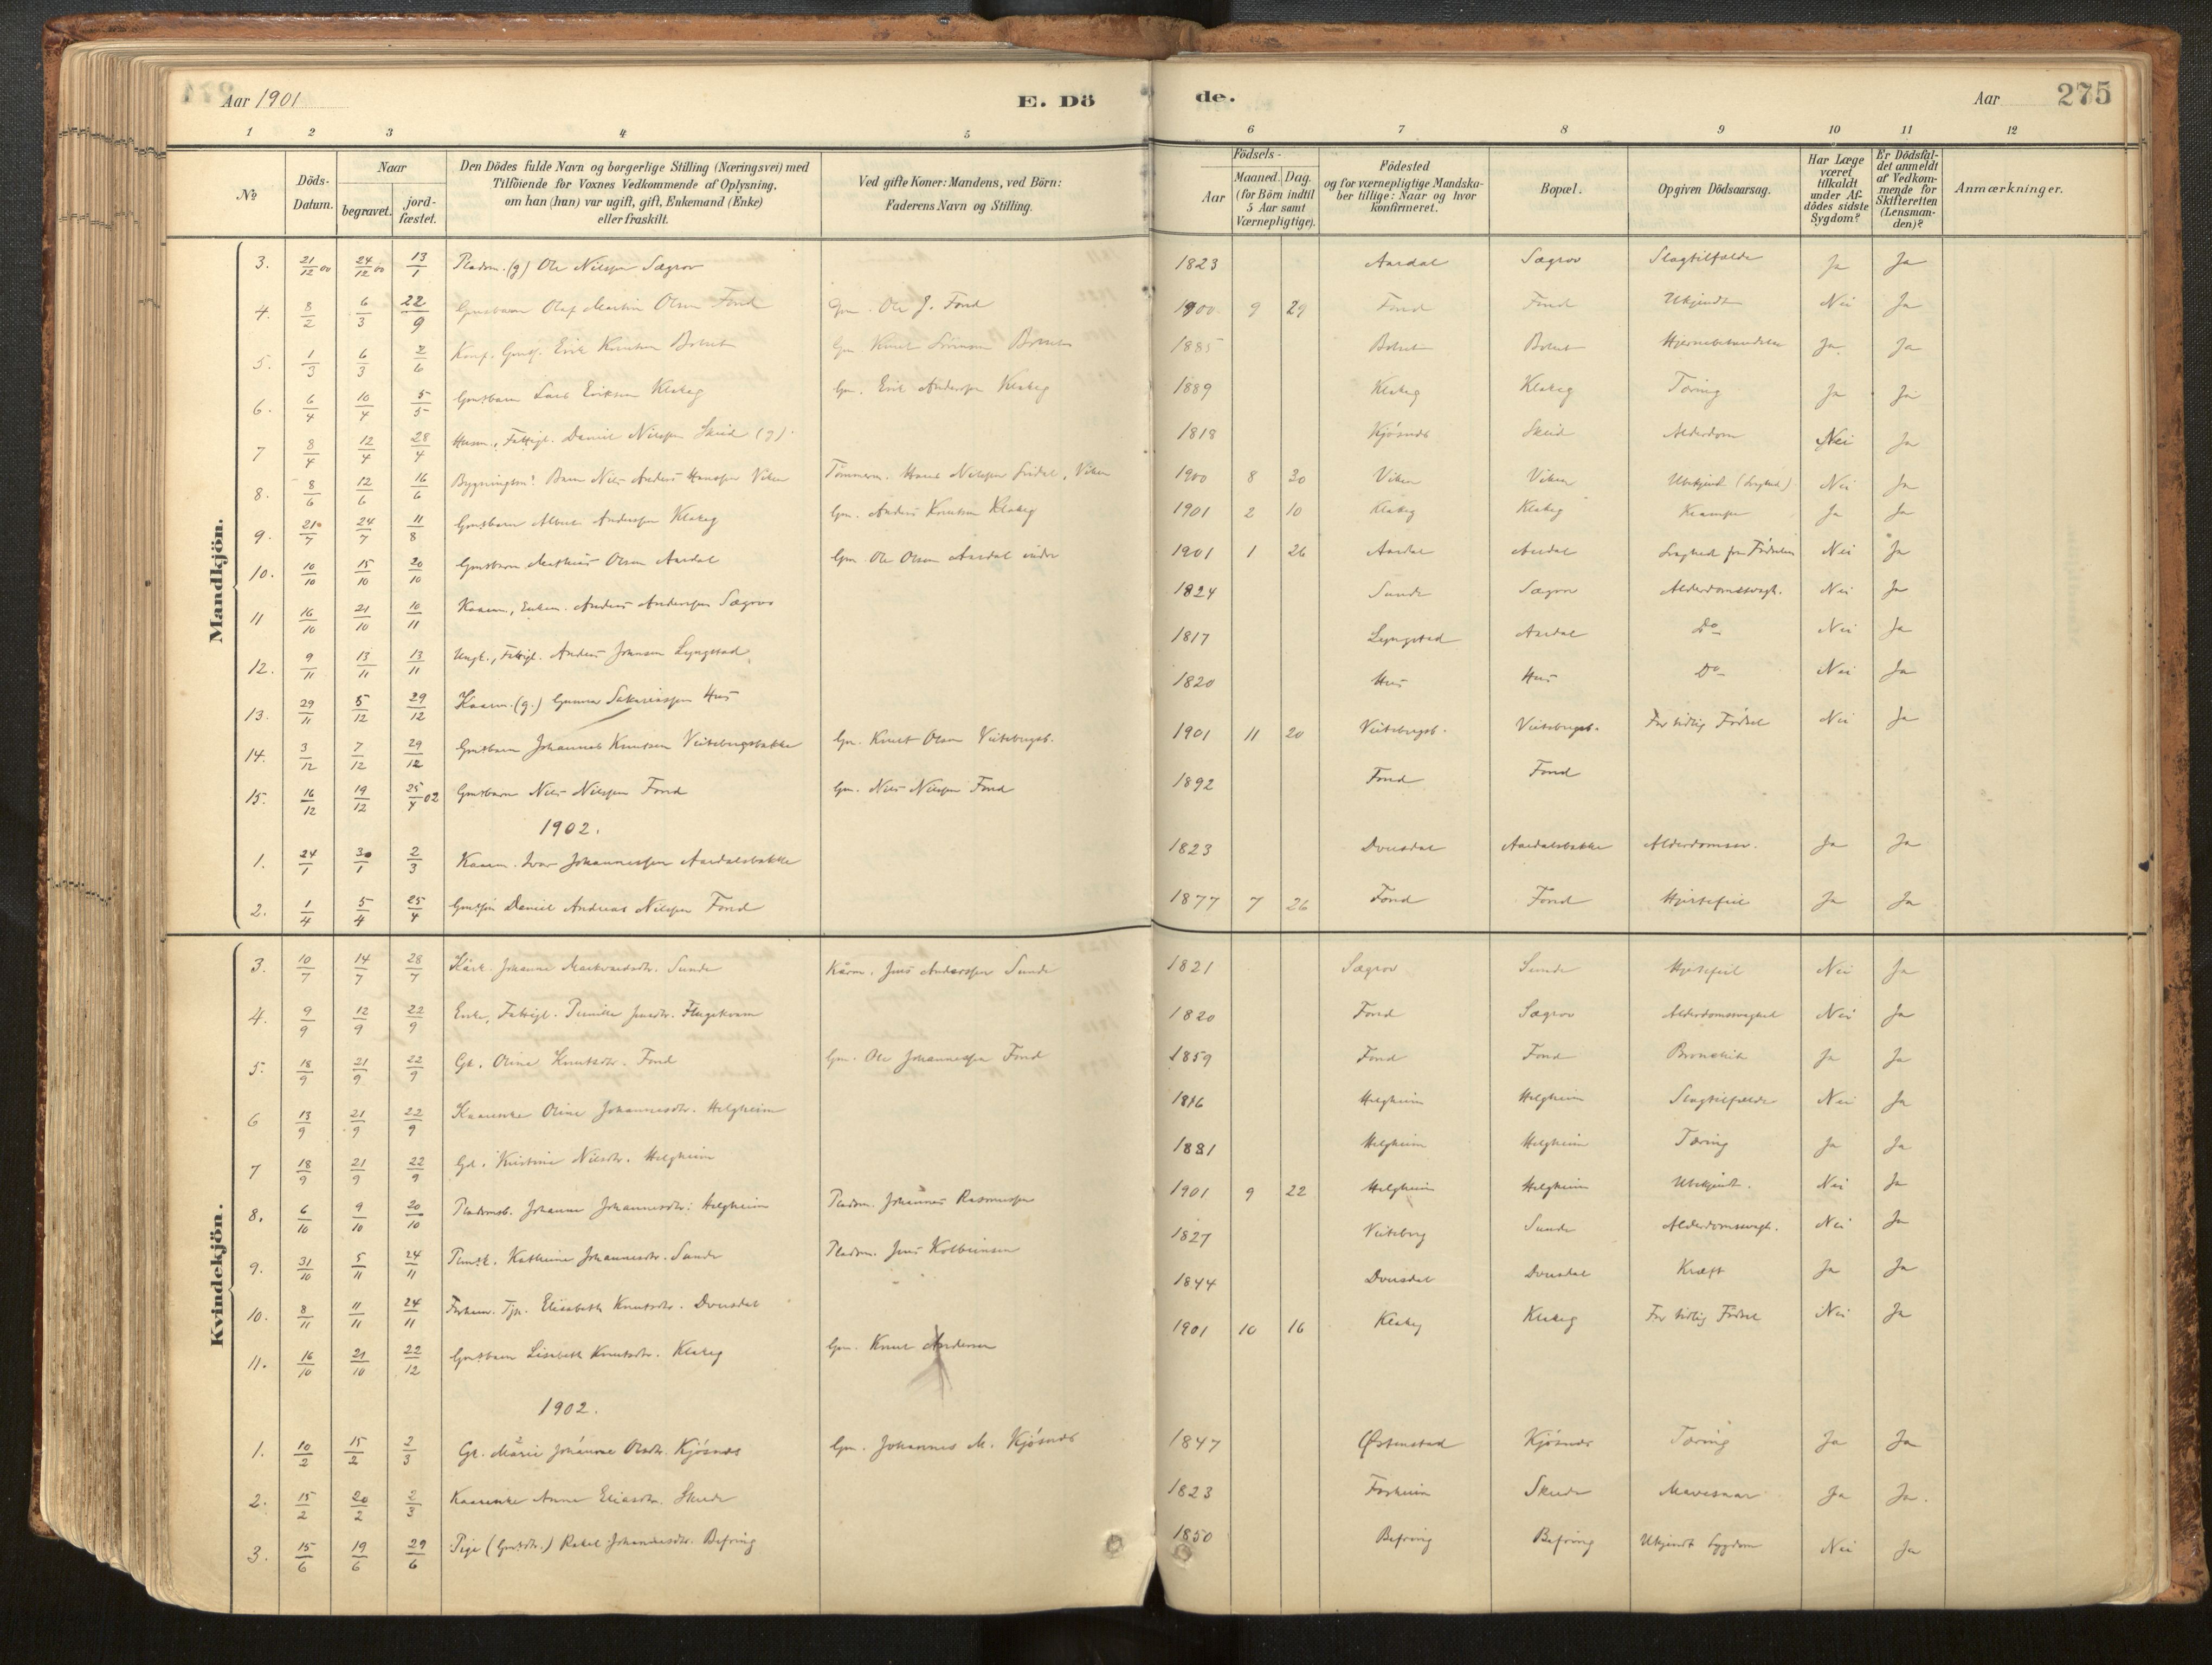 Aar 1901 E. Dö de. Aar 275
1 2 3 4 5 6 7 8 9 10 11 12
No Döds-Datum. Naar begravet. jord-fæstet. Den Dödes fulde Navn og borgerlige Stilling (Næringsvei) med Tilföiende for Voxnes Vedkommende af Oplysning, om han (hun) var ugift, gift, Enkemand (Enke) eller fraskilt. Ved gifte Koner: Mandens, ved Börn: Faderens Navn og Stilling. Födsels- Aar Maaned. Dag. (for Börn indtil 5 Aar samt Værnepligtige). Födested og for værnepligtige Mandskaber tillige: Naar og hvor konfirmeret. Bopæl. Opgiven Dödsaarsag. Har Læge været tilkaldt under Afdödes sidste Sygdom? Er Dödsfaldet anmeldt af Vedkommende for Skifteretten (Lensmanden)? Anmærkninger.
Mandkjön.
3. 21/12 00 24/12 00 13/1 Pladsm. (g) Ole Nilssen Sægrov 1823 Aardal Sægrov Slagtilfælde Ja Ja
4. 8/2 6/3 22/9 Gmsbarn Olaf Martin Olsen Fond Gm. Ole J. Fond 1900 9 29 Fond Fond Ukjendt Nei Ja
5. 1/3 6/3 2/6 Konf. Gmss. Erik Knutsen Bolset Gm Knut Bolset 1885 Bolset Bolset Hjernebetændelse Ja Ja
6. 6/4 10/4 5/5 Gmsbarn Lars Eriksen Klakeg Gm. Erik Anderssen Klakeg 1889 Klakeg Klakeg Tæring Ja Ja
7 8/4 12/4 28/4 Husm., Fattigl. Daniel Nilssen Skeid (g). 1818 Kjösnes Skeid Alderdom Nei Ja
8. 8/6 12/6 16/6 Barn Nils Andreas Hanssen Viken Tömmerm. Hans Nilssen Viken 1900 8 30 Viken Viken Ubekjendt (Svaghed) Nei Ja
9. 21/7 24/7 11/8 Gmsbarn Albert Anderssen Klakeg Gm. Anders Knutsen Klakeg 1901 2 10 Klakeg Klakeg Krampe Ja Ja
10. 10/10 15/10 20/10 Gmsbarn Mathias Olsen Aardal Gm. Ole Olsen Aardal indre 1901 1 26 Aardal Aardal Svaghed fra Födselen Nei Ja
11 16/10 21/10 10/11 Kaarm., Enkem. Anders Anderssen Sægrov 1824 Sunde Sægrov Alderdomssvagh. Nei Ja
12. 9/11 13/11 13/11 Ungk., Fattigl. Anders Johnsen Lyngstad 1817 Lyngstad Aardal Do Nei Ja
13. 29/11 5/12 29/12 Kaarm. (g.) Gunnar Sakariassen Hus 1820 Hus Hus Do Nei Ja
14. 3/12 7/12 29/12 Gmsbarn Johannes Knutsen Veitebergsbakke Gm. Knut Olsen Veitebergsb. 1901 11 20 Veitebergsb. Veitebergsb. For tidlig Födsel Nei Ja
15. 16/12 19/12 25/4 02 Gmsbarn Nils Nilssen Fond Gm. Nils Nilssen Fond 1892 Fond Fond
1902.
1. 24/1 30/1 2/3 Kaarm. Ivar Johannessen Aardalsbakke 1823 Dvergsdal Aardalsbakke Alderdomssv. Ja Ja
2. 1/4 5/4 25/4 Gmssön Daniel Andreas Nilssen Fond 1877 7 26 Fond Fond Hjertefeil Ja Ja
Kvindekjön.
3. 10/7 14/7 28/7 Kårk. Johanne Markvardsdtr. Sunde Kårm. Jens Anderssen Sunde 1821 Sægrov Sunde Hjertefeil Nei Ja
4. 9/9 12/9 22/9 Enke, Fattigl. Pernille Jensdtr. Flugekvam 1820 Fond Sægrov Alderdomssvaghed Nei Ja
5. 18/9 21/9 22/9 Gk. Oline Knutsdtr. Fond Gm. Ole Johannessen Fond 1859 Fond Fond Bronchit Ja Ja
6 13/9 21/9 22/9 Kaarenke Oline Johannesdtr. Helgheim 1816 Helgheim Helgheim Slagtilfælde Nei Ja
7 18/9 21/9 22/9 Gd. Kristine Nilsdtr. Helgheim 1881 Helgheim Helgheim Tæring Ja Ja
8. 6/10 9/10 20/10 Pladsmsb. Johanne Johannesdtr. Helgheim Pladsm. Johannes Rasmussen 1901 9 22 Helgheim Helgheim Ubekjendt. Nei Ja
9. 31/10 5/11 24/11 Katharine Johannesdtr. Sunde Pladsm. Jens Kolbeinsen 1827 Veiteberg Sunde Alderdomssvagh. Nei Ja
10. 8/11 11/11 24/11 Elisabeth Knutsdtr. Dvergsdal 1844 Dvergsdal Dvergsdal Kræft Ja Ja
11. 16/10 21/10 22/12 Gmsbarn Lisabeth Knutsdtr. Klakeg Gm. Knut Andersen 1901 10 16 Klakeg Klakeg For tidlig Födsel Nei Ja
1902.
1. 10/2 15/2 2/3 Gk. Marie Johanne Olsdtr. Kjösnes Gm. Johannes M. Kjösnes 1847 Østenstad Kjösnes Tæring Ja Ja
2. 15/2 20/2 2/3 Kaarenke Anne Eliasdtr. Skeide 1823 Förheim Skeide Mavesaar Ja Ja.
3. 15/6 19/6 29/6 Pige (Gmsdtr.) Rakel Johannesdtr. Befring 1850 Befring Befring Ukjendt Sygdom Nei Ja